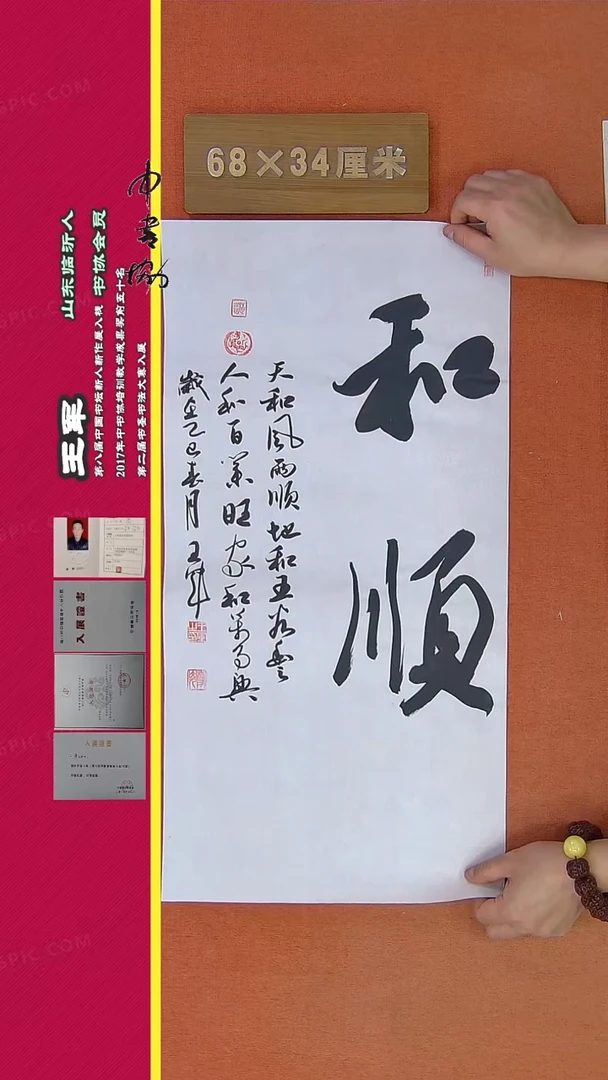 68×34厘米
和順
天和風雨順地和五谷豐
人和百業旺家和萬事興
歲在乙巳春月王軍
中書協
山东临沂人 书协会员
王军
第八届中国书坛新人新作展入展
2017年中书协培训教学成果奖前五十名
第二届书圣书法大赛入展
入展證書